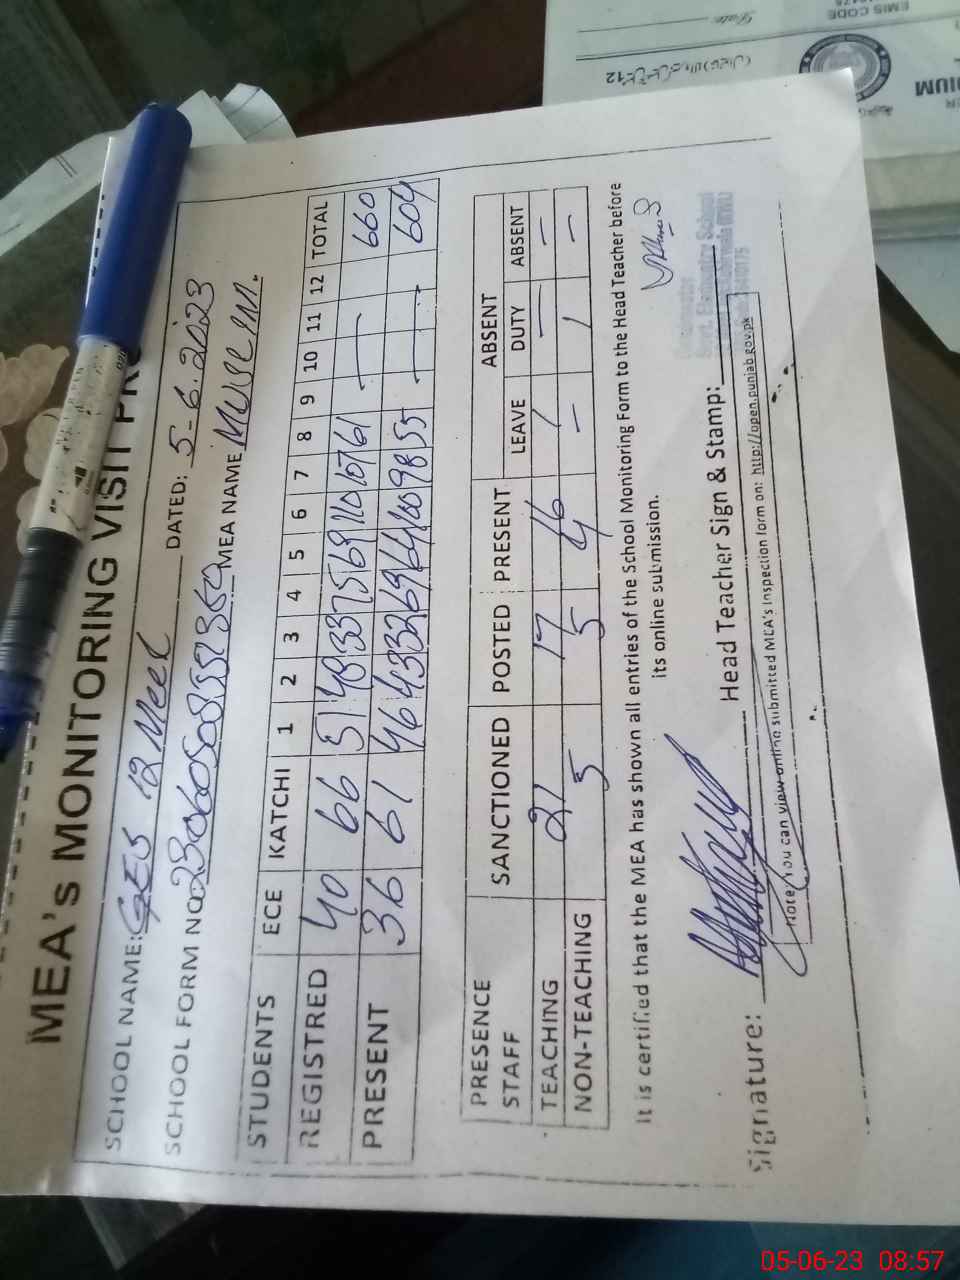 MEA's MONITORING VISIT PRO
SCHOOL NAME: GES 12 Meel DATED: 5-6.2023
SCHOOL FORM NO. MEA NAME MUSLIM.
STUDENTS ECE KATCHI 1 2 3 4 5 6 7 8 9 10 11 12 TOTAL
REGISTRED 40 66 51 48 33 75 69 110 107 61 — 660
PRESENT 36 61 46 43 32 69 64 100 98 55 — 604
PRESENCE STAFF SANCTIONED POSTED PRESENT ABSENT
LEAVE DUTY ABSENT
TEACHING 21 17 — —
NON-TEACHING 5 5 — —
It is certified that the MEA has shown all entries of the School Monitoring Form to the Head Teacher before
its online submission.
Signature: Head Teacher Sign & Stamp:
Govt. Elementry School
Note: You can view online submitted MEA's Inspection form on: http://open.punjab.gov.pk
EMIS CODE
05-06-23 08:57